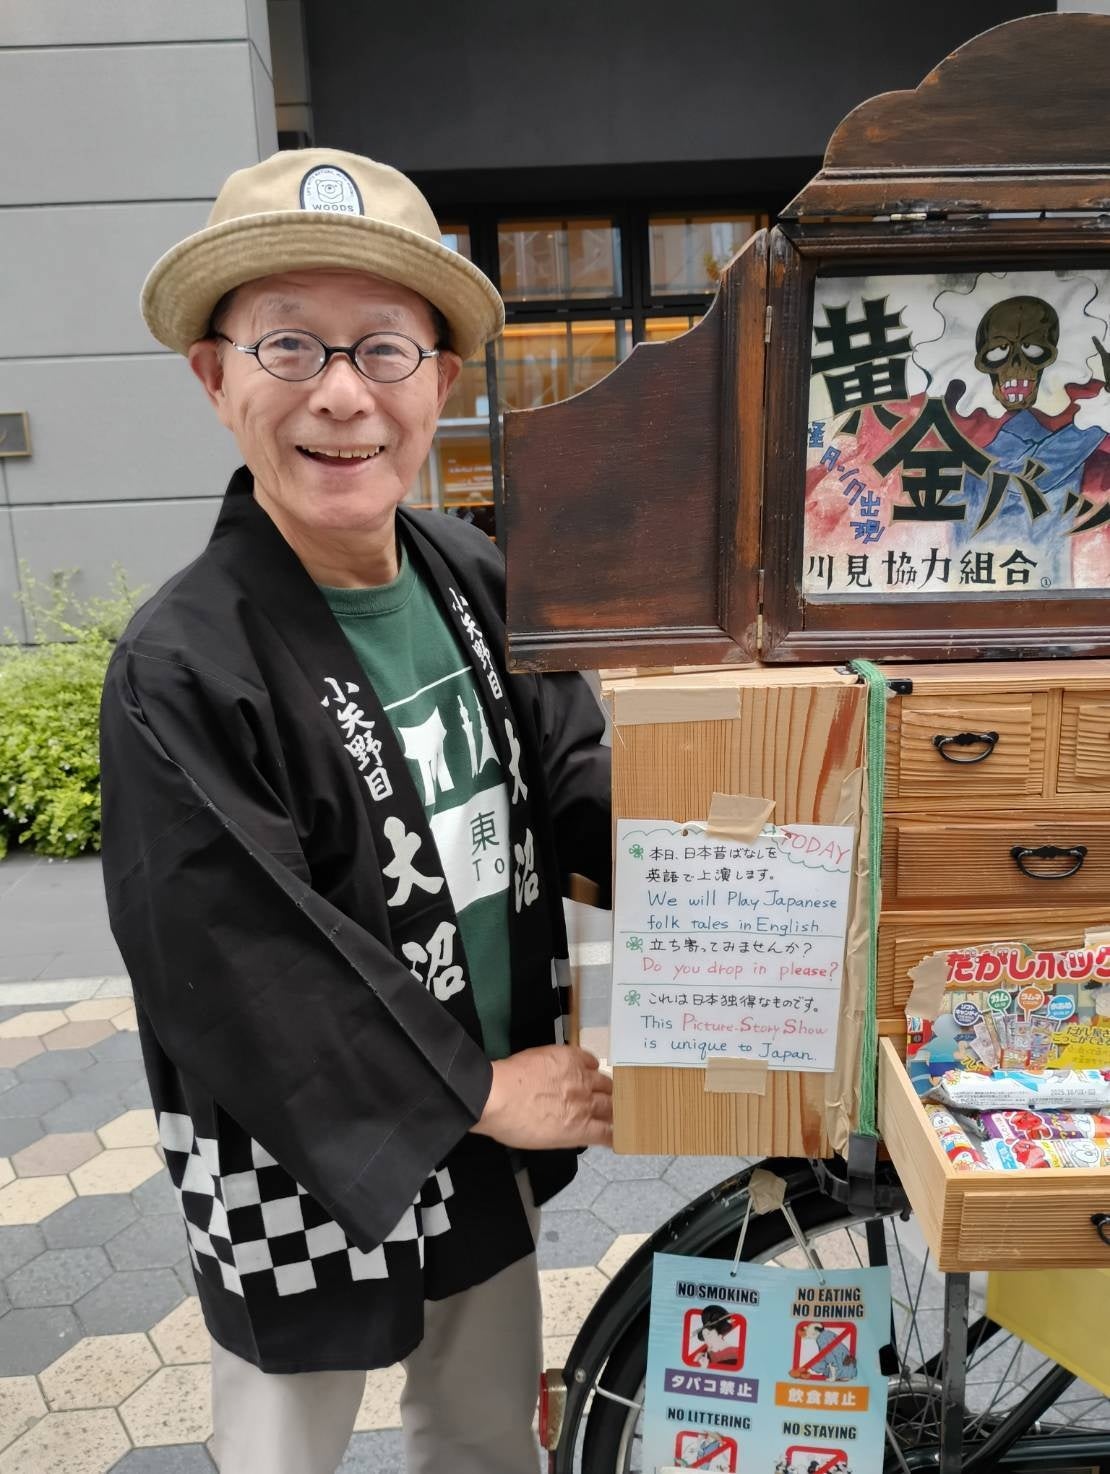 WOODS
黄金バッ
怪タンク出現
川見協力組合 ①
小矢野目 大沼
小矢野目 大沼
東
To
TODAY
本日、日本昔ばなしを
英語で上演します。
We will Play Japanese
folk tales in English.
立ち寄ってみませんか?
Do you drop in please?
これは日本独得なものです。
This Picture-Story Show
is unique to Japan.
だがしボック
ガム
ラムネ
NO SMOKING
タバコ禁止
NO EATING
NO DRINING
飲食禁止
NO LITTERING
NO STAYING